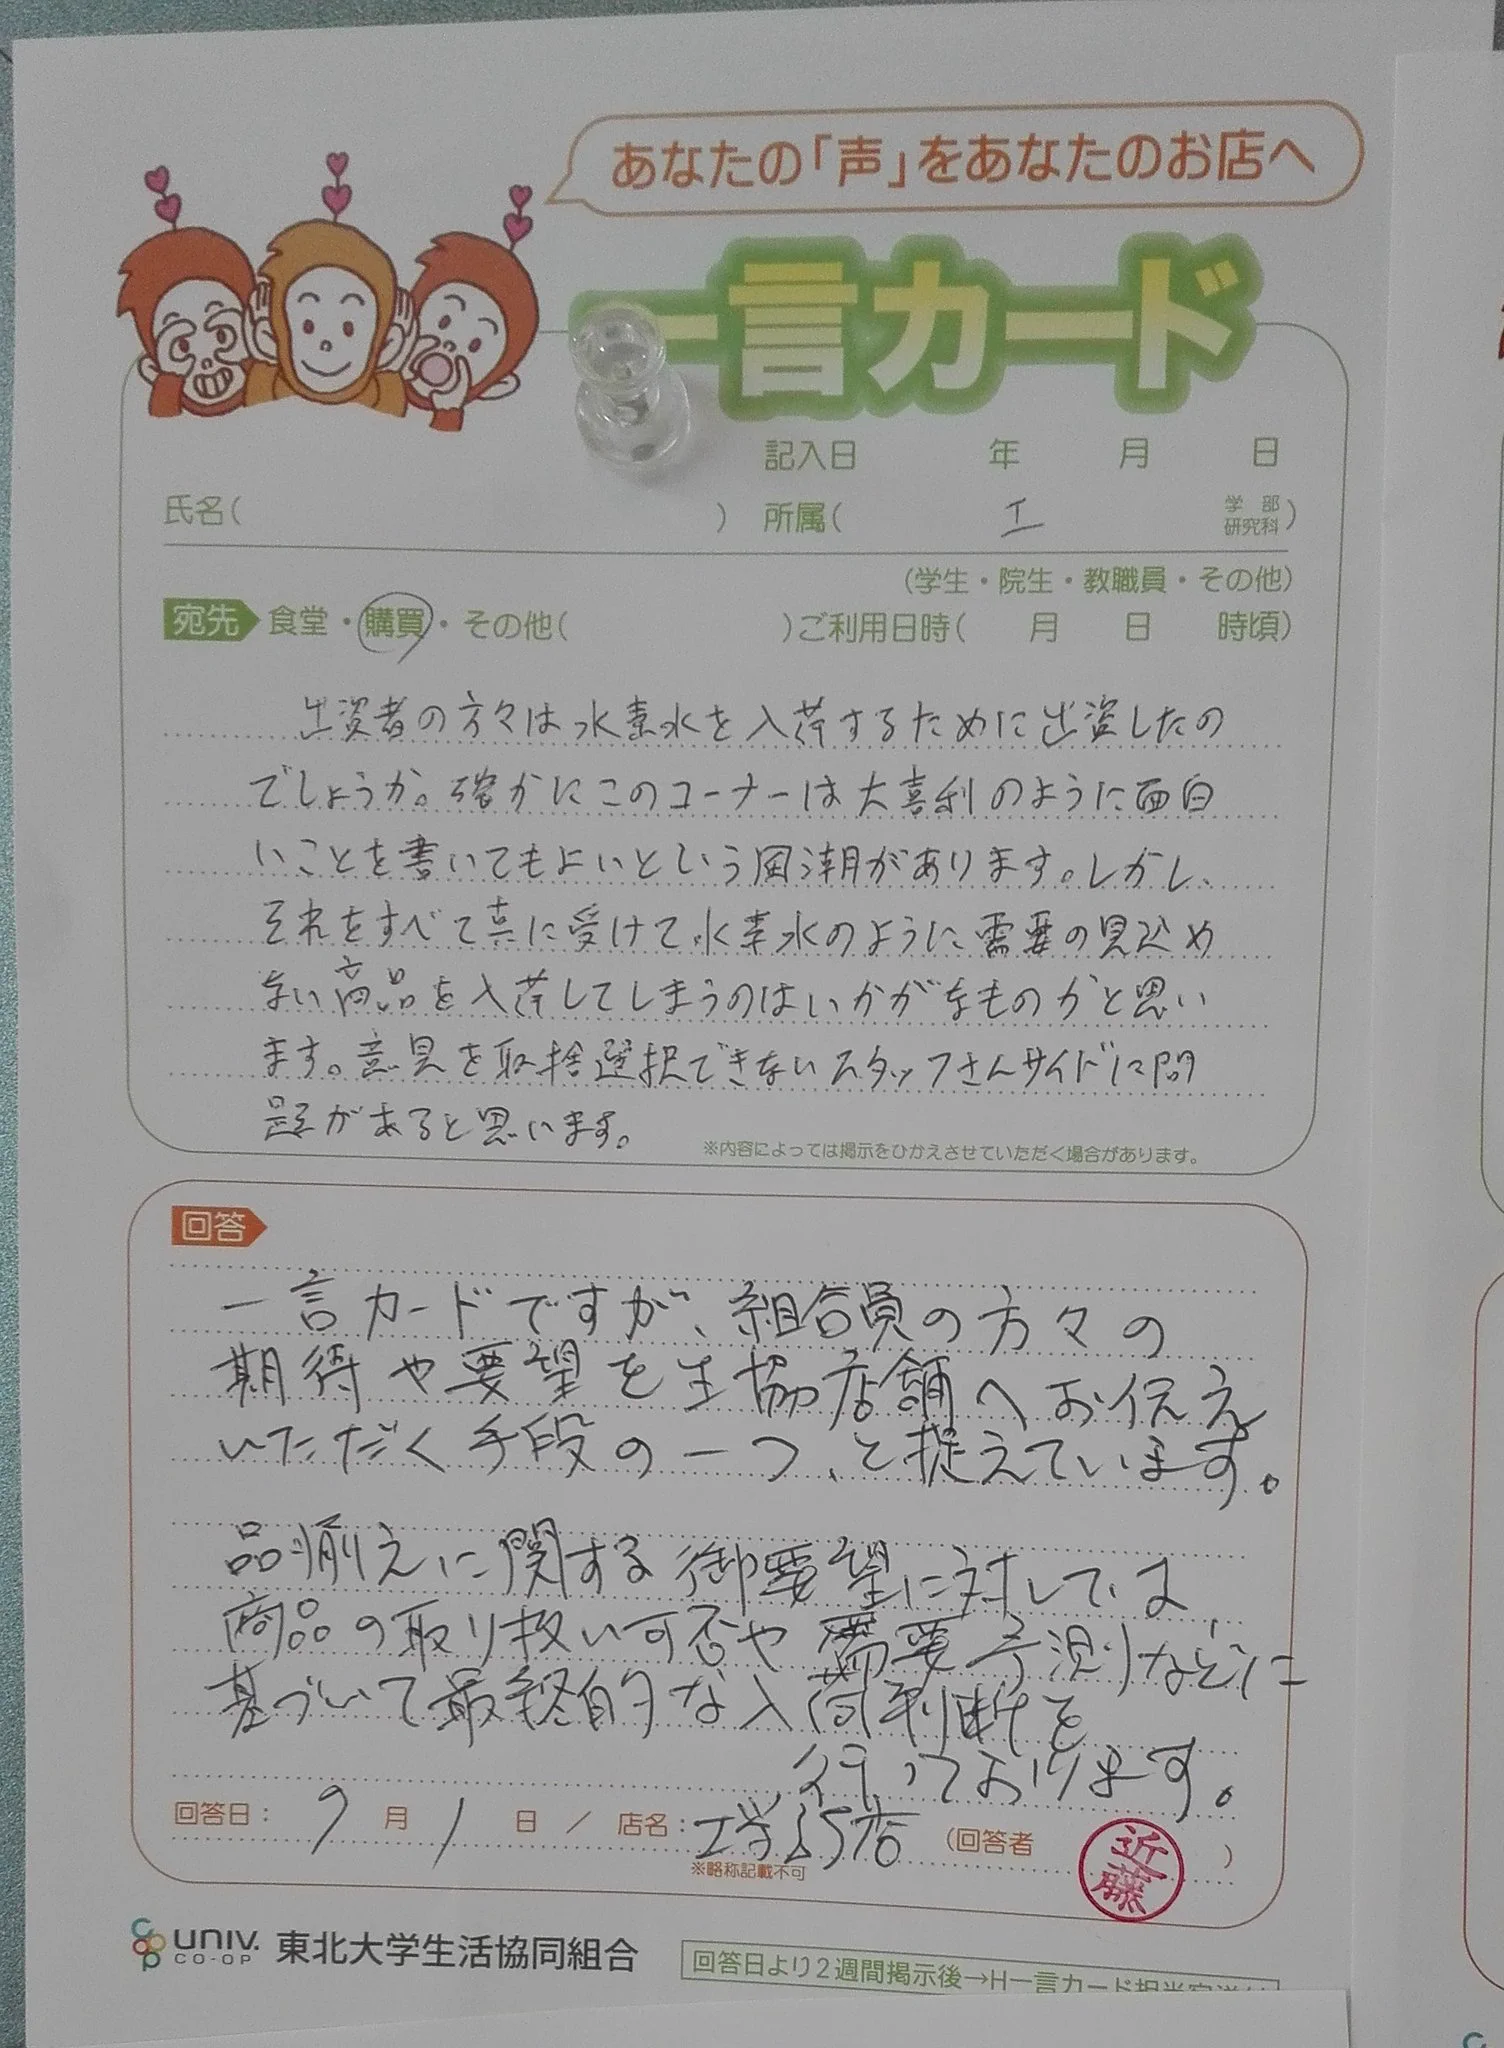 あなたの「声」をあなたのお店へ
一言カード
記入日 年 月 日
氏名( ) 所属( 工 学部 研究科)
(学生・院生・教職員・その他)
宛先 食堂・購買・その他( )ご利用日時( 月 日 時頃)
出資者の方々は水素水を入荷するために出資したの
でしょうか。確かにこのコーナーは大喜利のように面白
いことを書いてもよいという風潮があります。しかし、
それをすべて真に受けて水素水のように需要の見込め
ない商品を入荷してしまうのはいかがなものかと思い
ます。意見を取捨選択できないスタッフさんサイドに問
題があると思います。
※内容によっては掲示をひかえさせていただく場合があります。
回答
一言カードですが、組合員の方々の
期待や要望を生協店舗へお伝え
いただく手段の一つ、と捉えています。
品揃えに関する御要望に対しては、
商品の取り扱い可否や需要予測などに
基づいて最終的な入荷判断を
行っております。
回答日: 9 月 1 日 / 店名: 工学部店 (回答者 近藤 )
※略称記載不可
UNIV. CO-OP 東北大学生活協同組合
回答日より2週間掲示後→H一言カード担当